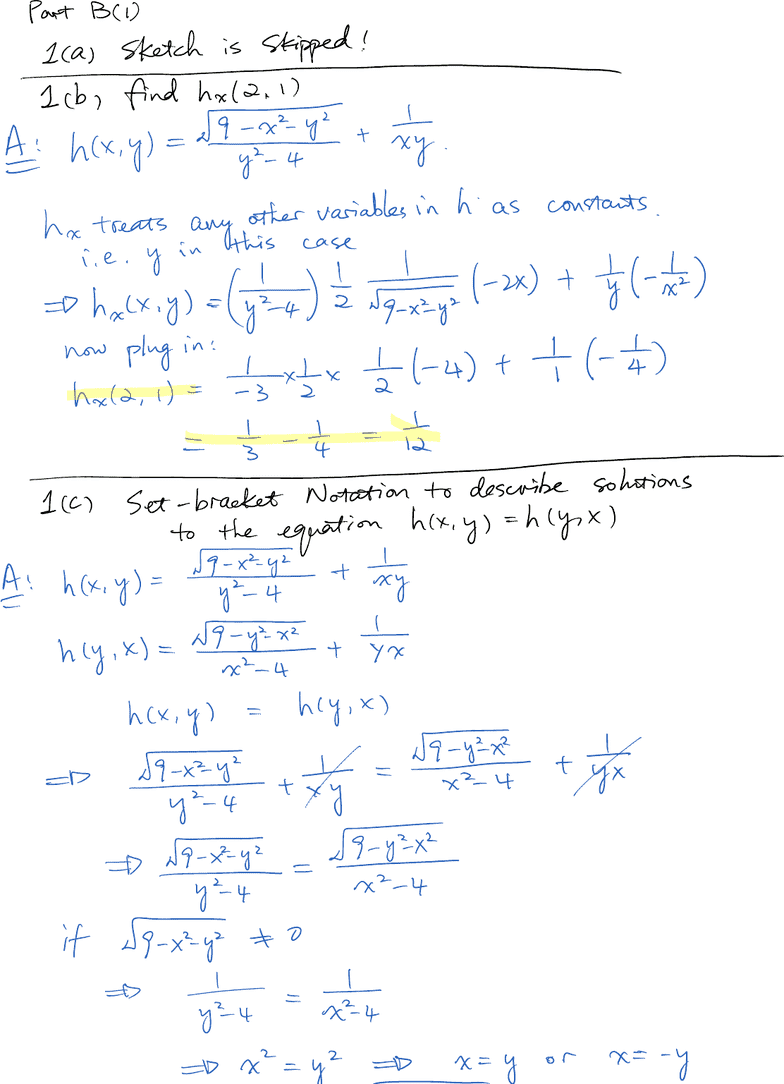 Part B(1)
1(a) Sketch is skipped!
1(b) find hx(2,1)
A: h(x,y) = √(9-x²-y²)/(y²-4) + 1/(xy).
hx treats any other variables in h as constants.
i.e. y in this case
⇒ hx(x,y) = (1/(y²-4)) 1/2 1/√(9-x²-y²) (-2x) + 1/y (-1/x²)
now plug in:
hx(2,1) = 1/-3 × 1/2 × 1/2 (-4) + 1/1 (-1/4)
= 1/3 - 1/4 = 1/12
1(c) Set-bracket Notation to describe solutions
to the equation h(x,y) = h(y,x)
A: h(x,y) = √(9-x²-y²)/(y²-4) + 1/(xy)
h(y,x) = √(9-y²-x²)/(x²-4) + 1/(yx)
h(x,y) = h(y,x)
⇒ √(9-x²-y²)/(y²-4) + 1/(xy) = √(9-y²-x²)/(x²-4) + 1/(yx)
⇒ √(9-x²-y²)/(y²-4) = √(9-y²-x²)/(x²-4)
if √(9-x²-y²) ≠ 0
⇒ 1/(y²-4) = 1/(x²-4)
⇒ x² = y² ⇒ x=y or x=-y